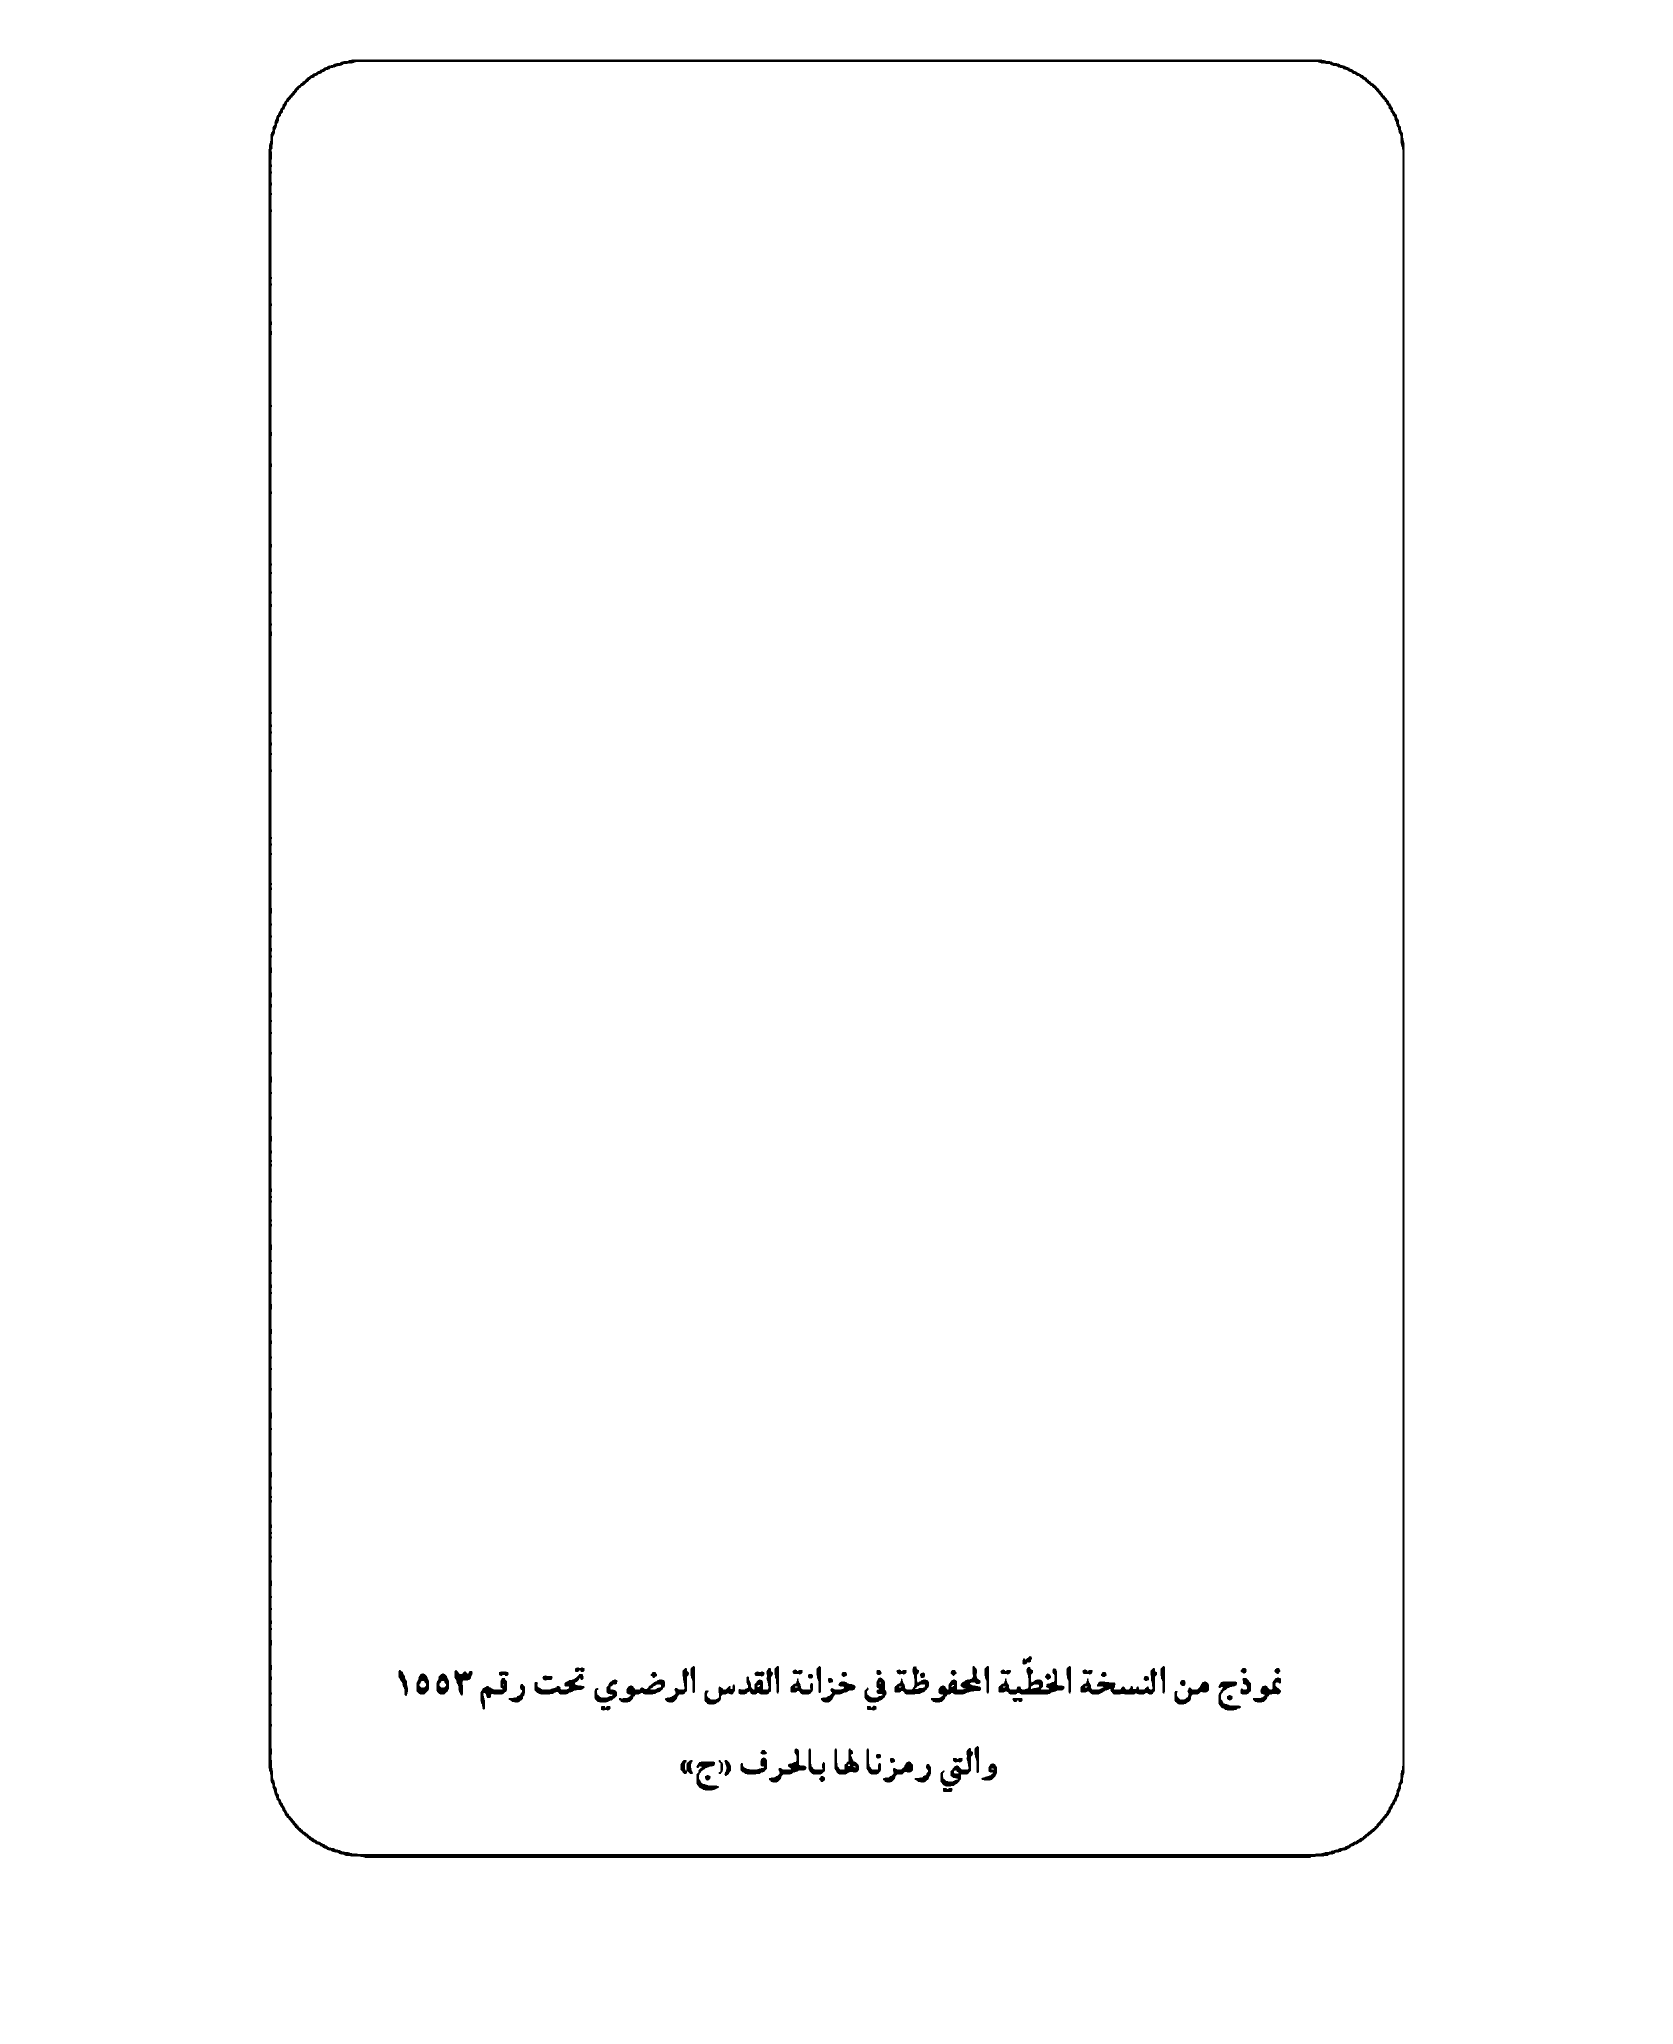 نموذج من النسخة الخطّية المحفوظة في خزانة القدس الرضوي تحت رقم ١٥٥٣
والتي رمزنا لها بالحرف «ج»